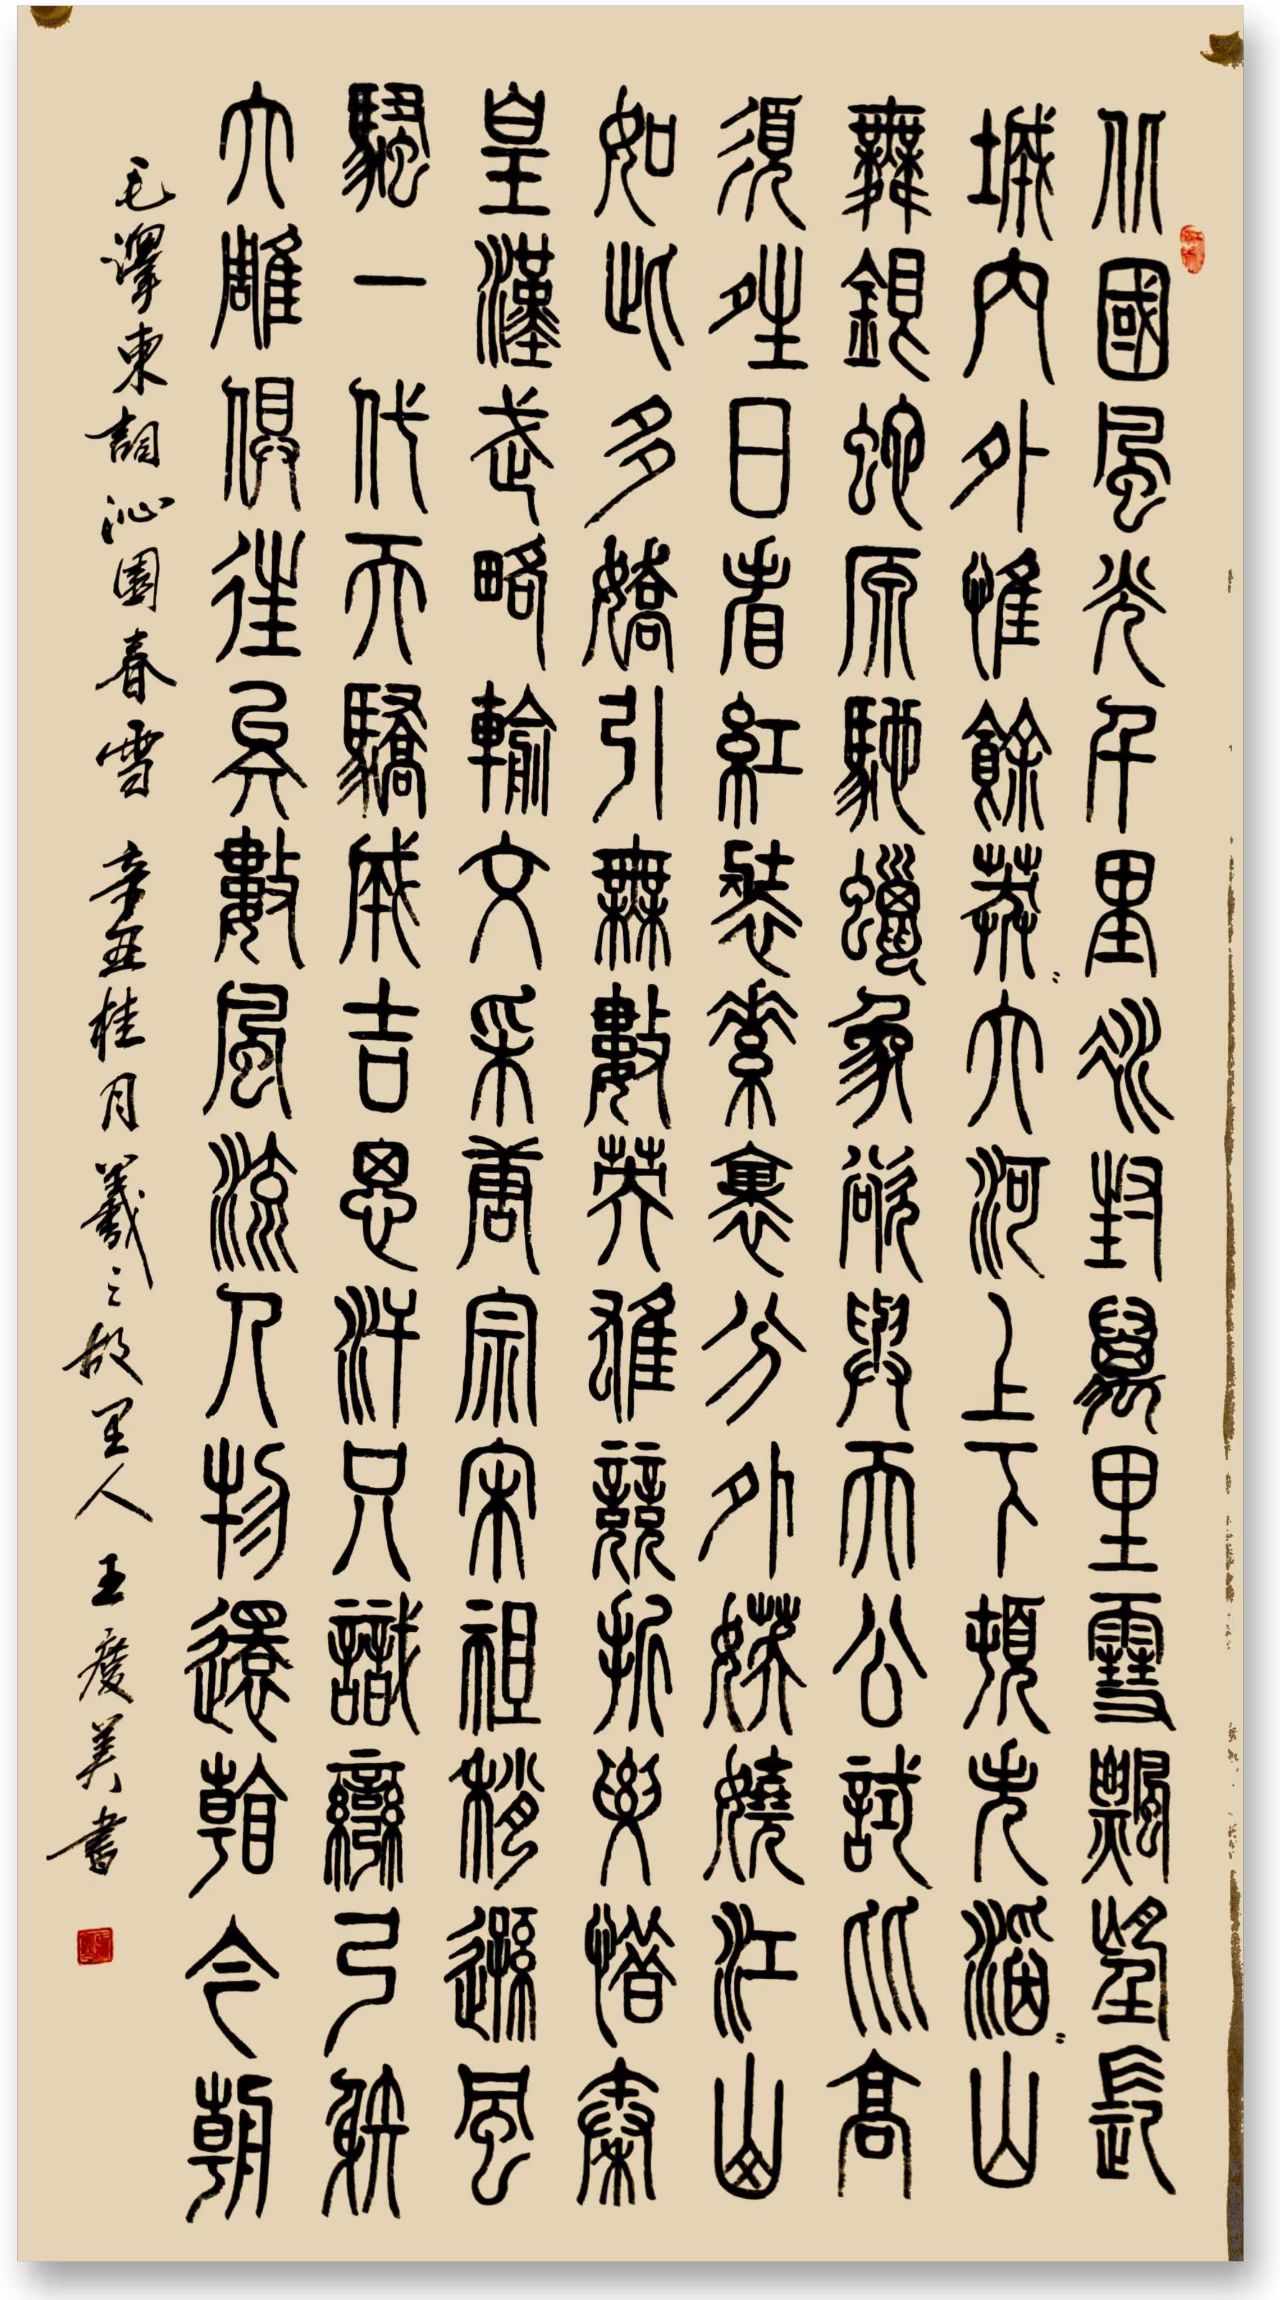 北國風光千里冰封萬里雪飄望長
城內外惟餘莽〻大河上下頓失滔〻山
舞銀蛇原馳蠟象欲與天公試比高
須晴日看紅裝素裹分外妖嬈江山
如此多嬌引無數英雄競折腰惜秦
皇漢武略輸文采唐宗宋祖稍遜風
騷一代天驕成吉思汗只識彎弓射
大雕俱往矣數風流人物還看今朝
毛澤東詞沁園春雪 辛丑桂月羲之故里人王慶美書